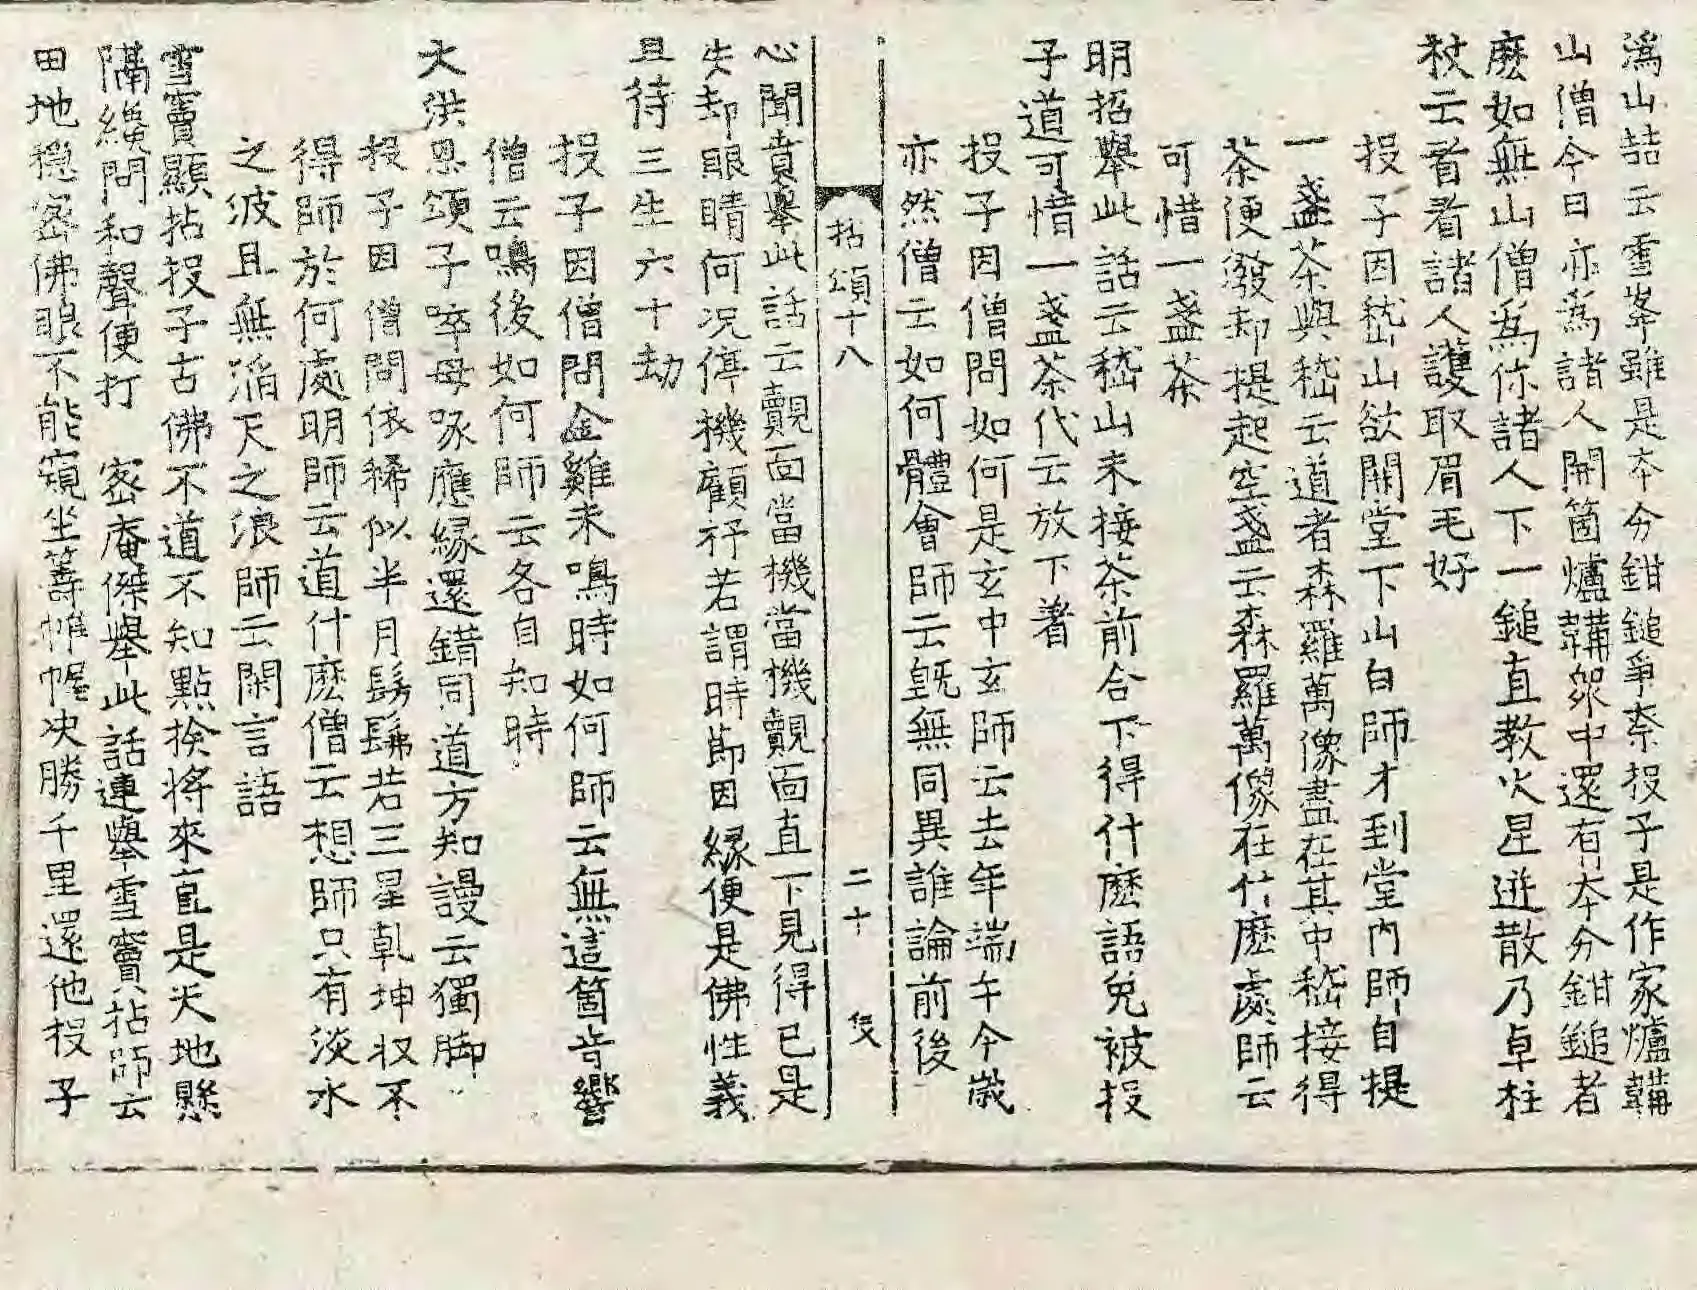 潙山喆云雪峯雖是本分鉗鎚爭柰投子是作家爐韛
山僧今日亦爲諸人開箇爐韛衆中還有本分鉗鎚者
麽如無山僧爲你諸人下一鎚直教火星迸散乃卓柱
杖云看看諸人護取眉毛好
投子因嵇山欲開堂下山白師才到堂內師自提
一盞茶與嵇云道者森羅萬像盡在其中嵇接得
茶便潑却提起空盞云森羅萬像在什麽處師云
可惜一盞茶
明招舉此話云嵇山未接茶前合下得什麽語免被投
子道可惜一盞茶代云放下著
投子因僧問如何是玄中玄師云去年端午今歲
亦然僧云如何體會師云旣無同異誰論前後
拈頌十八 二十
心聞賁舉此話云覿面當機當機覿面直下見得已是
失却眼睛何況停機顧矜若謂時節因緣便是佛性義
且待三生六十劫
投子因僧問金雞未鳴時如何師云無這箇音響
僧云鳴後如何師云各自知時
大洪恩頌子啐母啄應緣還錯同道方知謾云獨脚
投子因僧問依俙似半月髣髴若三星乹坤收不
得師於何處明師云道什麽僧云想師只有淡水
之波且無滔天之浪師云閑言語
雪竇顯拈投子古佛不道不知點撿將來直是天地懸
隔纔問和聲便打 密庵傑舉此話連舉雪竇拈師云
田地穩密佛眼不能窺坐籌帷幄决勝千里還他投子